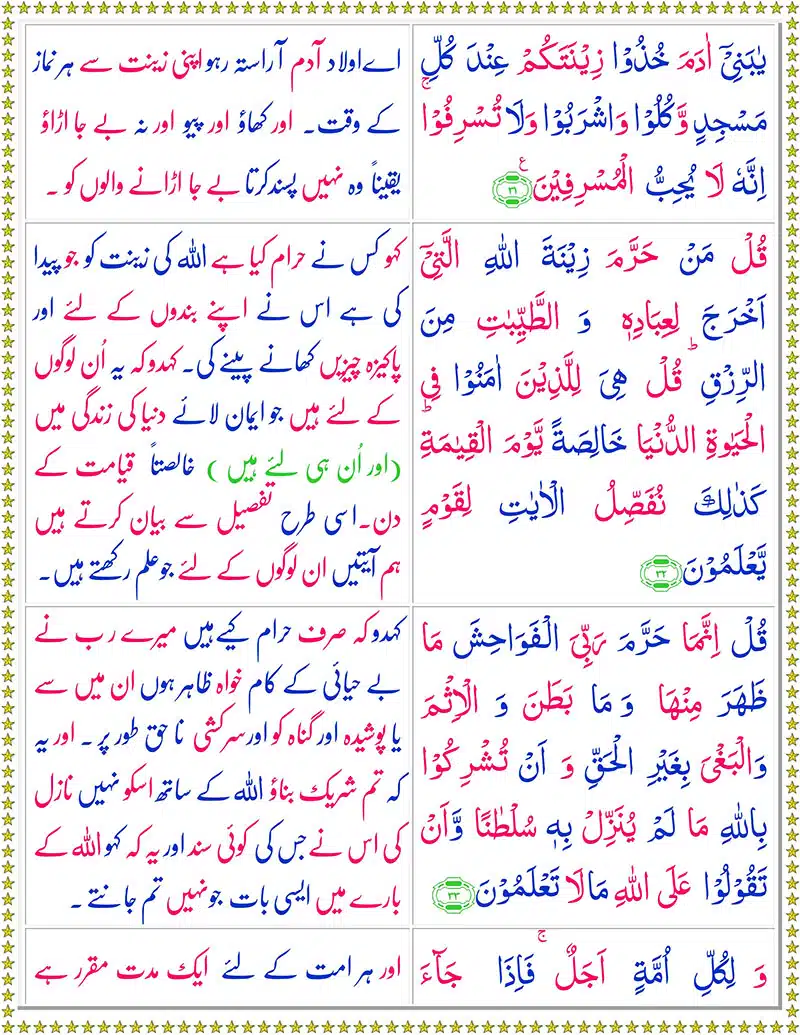 یٰبَنِیْۤ اٰدَمَ خُذُوْا زِیْنَتَكُمْ عِنْدَ كُلِّ
مَسْجِدٍ وَّكُلُوْا وَاشْرَبُوْا وَلَا تُسْرِفُوْا ۚ
اِنَّهٗ لَا یُحِبُّ الْمُسْرِفِیْنَ ۠ ﴿۳۱﴾
اے اولاد آدم آراستہ رہو اپنی زینت سے ہر نماز
کے وقت۔ اور کھاؤ اور پیو اور نہ بے جا اڑاؤ
یقیناً وہ نہیں پسند کرتا بے جا اڑانے والوں کو ۔
قُلْ مَنْ حَرَّمَ زِیْنَةَ اللّٰهِ الَّتِیْۤ
اَخْرَجَ لِعِبَادِهٖ وَ الطَّیِّبٰتِ مِنَ
الرِّزْقِ ؕ قُلْ هِیَ لِلَّذِیْنَ اٰمَنُوْا فِی
الْحَیٰوةِ الدُّنْیَا خَالِصَةً یَّوْمَ الْقِیٰمَةِ ؕ
كَذٰلِكَ نُفَصِّلُ الْاٰیٰتِ لِقَوْمٍ
یَّعْلَمُوْنَ ﴿۳۲﴾
کہو کس نے حرام کیا ہے اللہ کی زینت کو جو پیدا
کی ہے اس نے اپنے بندوں کے لئے اور
پاکیزہ چیزیں کھانے پینے کی۔ کہدو کہ یہ اُن لوگوں
کے لئے ہیں جو ایمان لائے دنیا کی زندگی میں
(اور اُن ہی لئے ہیں ) خالصتاً قیامت کے
دن۔ اسی طرح تفصیل سے بیان کرتے ہیں
ہم آیتیں ان لوگوں کے لئے جو علم رکھتے ہیں۔
قُلْ اِنَّمَا حَرَّمَ رَبِّیَ الْفَوَاحِشَ مَا
ظَهَرَ مِنْهَا وَ مَا بَطَنَ وَ الْاِثْمَ
وَالْبَغْیَ بِغَیْرِ الْحَقِّ وَ اَنْ تُشْرِكُوْا
بِاللّٰهِ مَا لَمْ یُنَزِّلْ بِهٖ سُلْطٰنًا وَّاَنْ
تَقُوْلُوْا عَلَی اللّٰهِ مَا لَا تَعْلَمُوْنَ ﴿۳۳﴾
کہدو کہ صرف حرام کیے ہیں میرے رب نے
بے حیائی کے کام خواہ ظاہر ہوں ان میں سے
یا پوشیدہ اور گناہ کو اور سرکشی ناحق طور پر ۔ اور یہ
کہ تم شریک بناؤ اللہ کے ساتھ اسکو نہیں نازل
کی اس نے جس کی کوئی سند اور یہ کہ کہو اللہ کے
بارے میں ایسی بات جو نہیں تم جانتے ۔
وَ لِكُلِّ اُمَّةٍ اَجَلٌ ۚ فَاِذَا جَآءَ
اور ہر امت کے لئے ایک مدت مقرر ہے